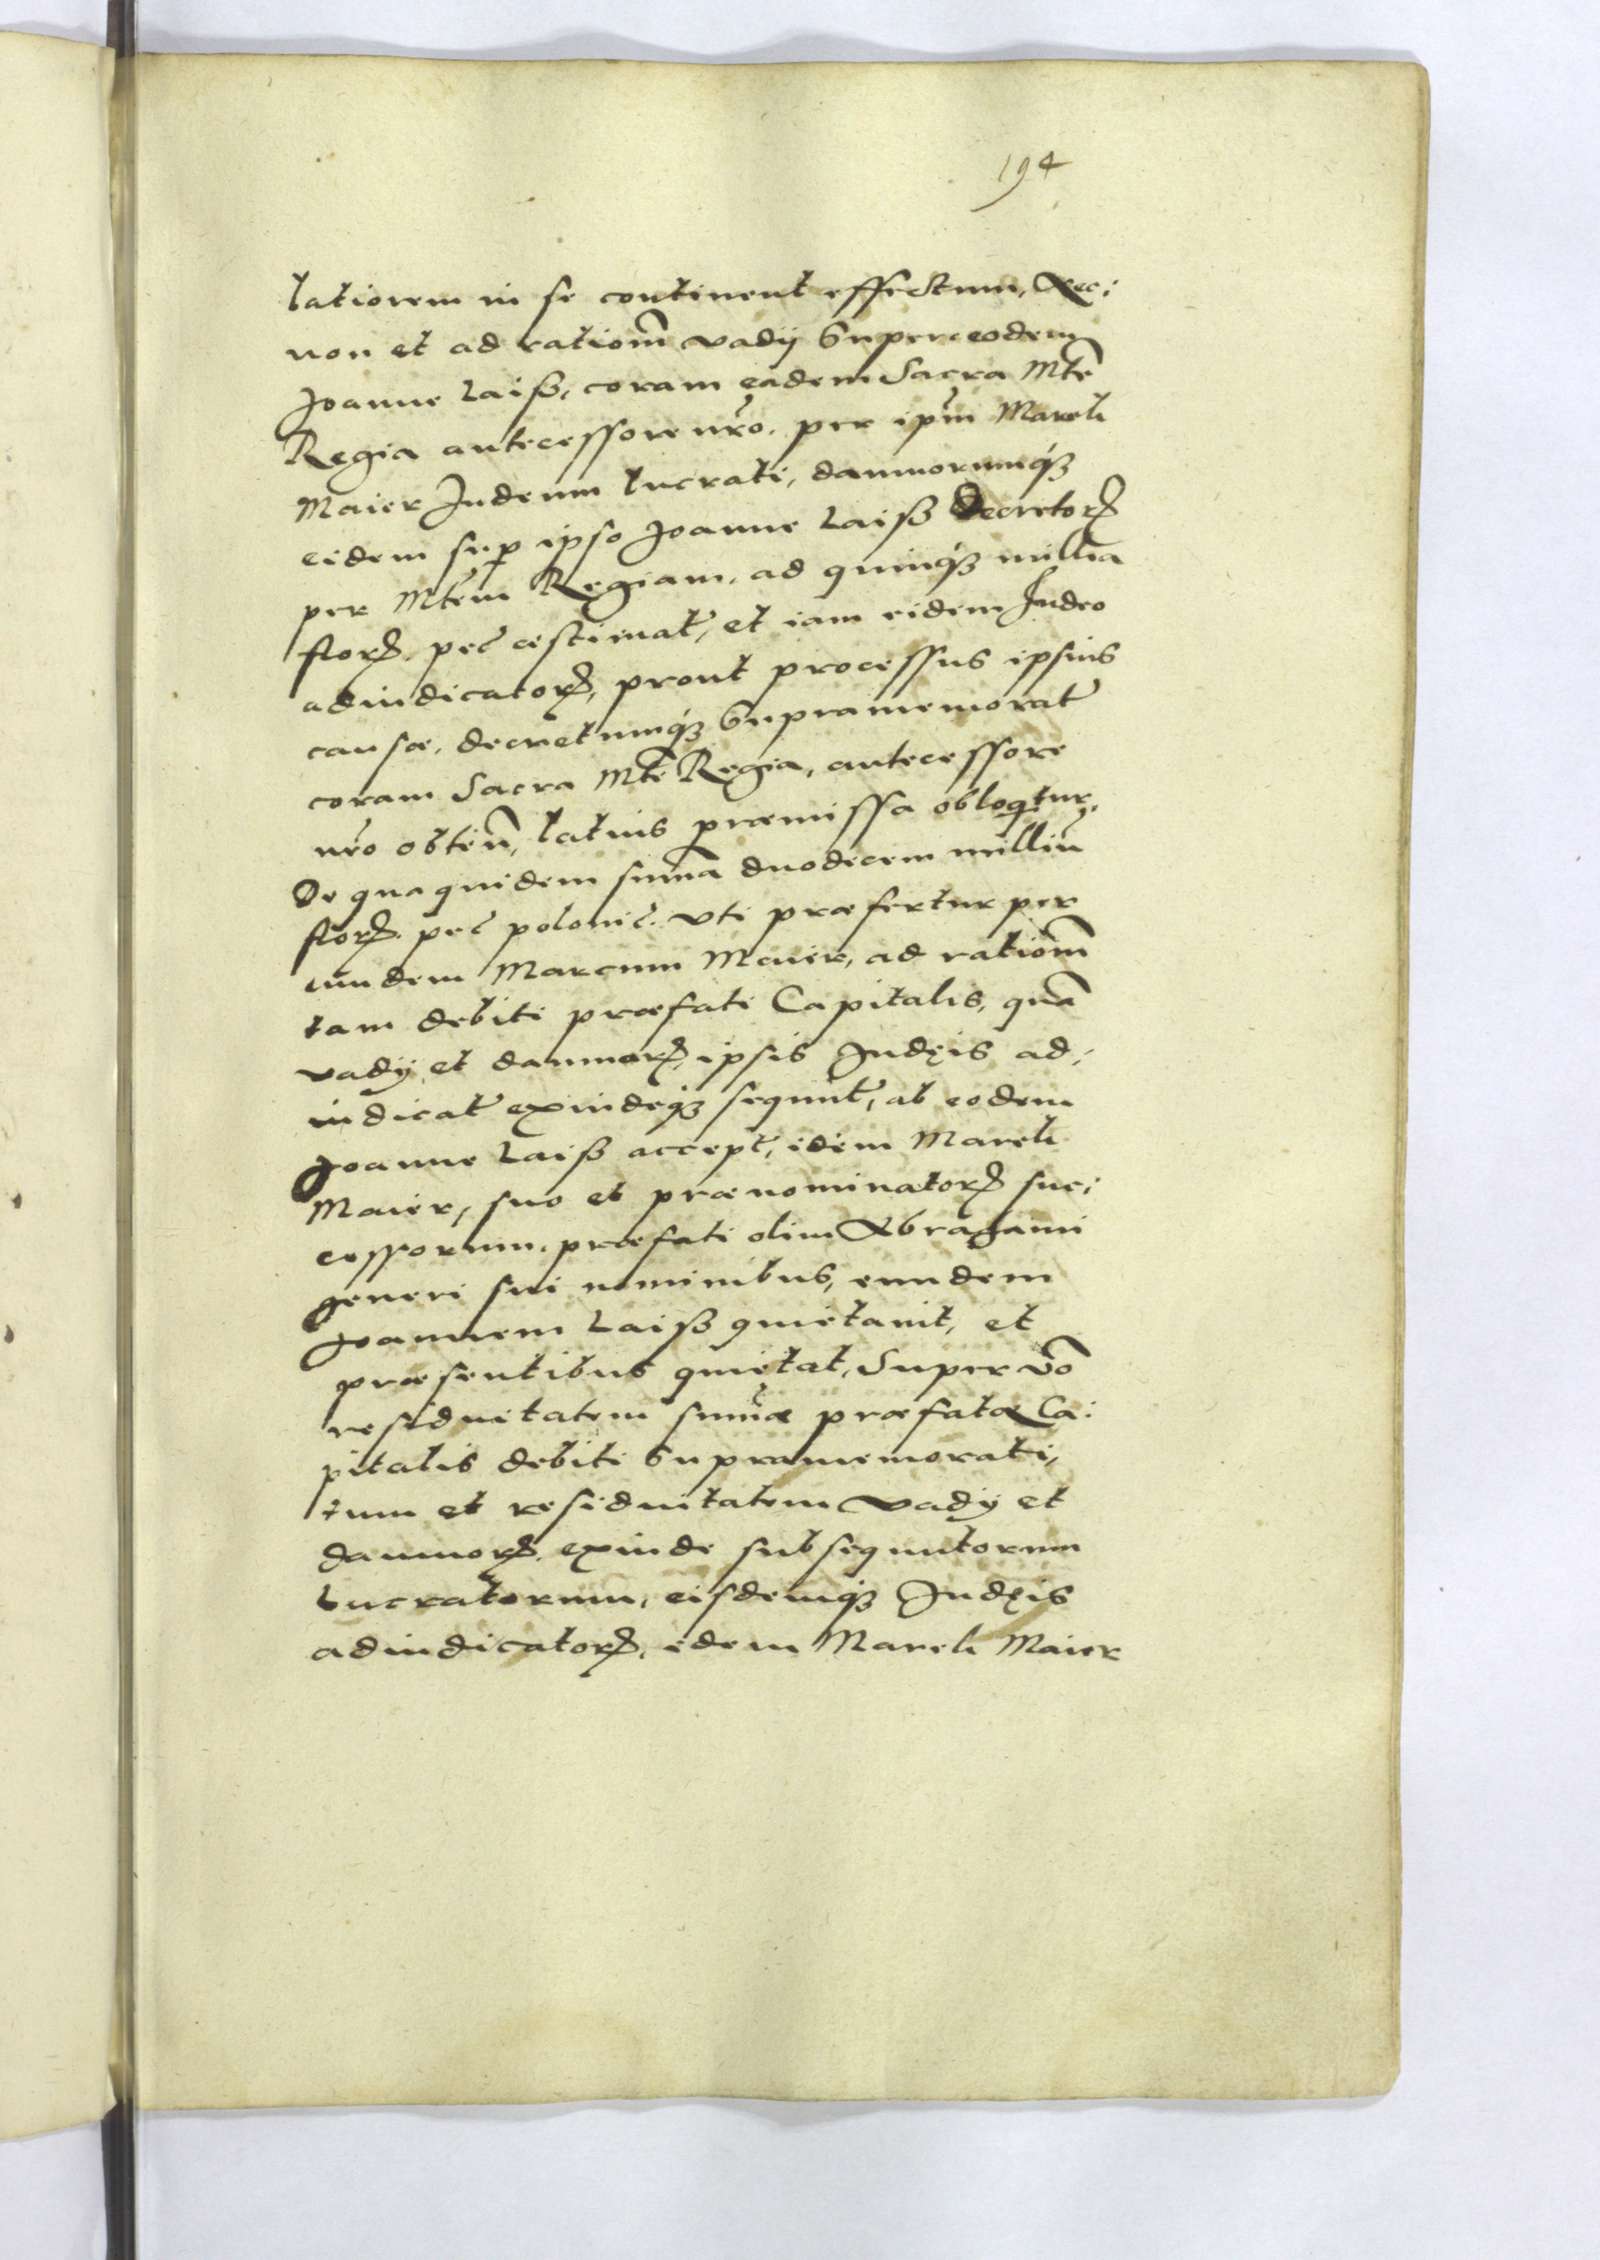 194
latiorem in se continent effectum, Nec:
non et ad rationẽ vadij super eodem
Joanne Laiß, coram eadem Sacra Mtẽ
Regia antecessore nr̃o. per ipm̃ Mareli
Maier Judeum lucrati, damnorumq3
eidem sup ipso Joanne Laiß decretorꝝ
per Mtẽm Regiam, ad quinq3 millia
florꝝ. pec̃ aestimat̃, et iam eidem Judeo
adiudicatorꝝ, prout processus ipsius
causae, decretumq3 supramemorat̃
coram Sacra Mtẽ Regia, antecessore
nr̃o obteñ, latius praemissa obloqtur,
De qua quidem sum̃a duodecem milliũ
florꝝ. pec̃ polonic̃. uti praefertur per
eundem Marcum Maier, ad rationẽ
tam debiti praefati Capitalis, quã
vadij et damnorꝝ, ipsis Judęis ad:
iudicat̃ exindeq3 sequut̃, ab eodem
Joanne Laiß accept̃, idem Mareli
Maier, suo et praenominatorꝝ suc:
cessorum, praefati olim Abragami
generi sui nominibus, eundem
Joannem Laiß quietavit, et
praesentibus quietat, Super vo͂
residuitatem sum̃ae praefatae Ca:
pitalis debiti supramemorati,
tum et residuitatem vadij et
damnorꝝ. exinde subsequutorum
lucratorum, eisdemq3 Judęis
adiudicatorꝝ, idem Mareli Maier